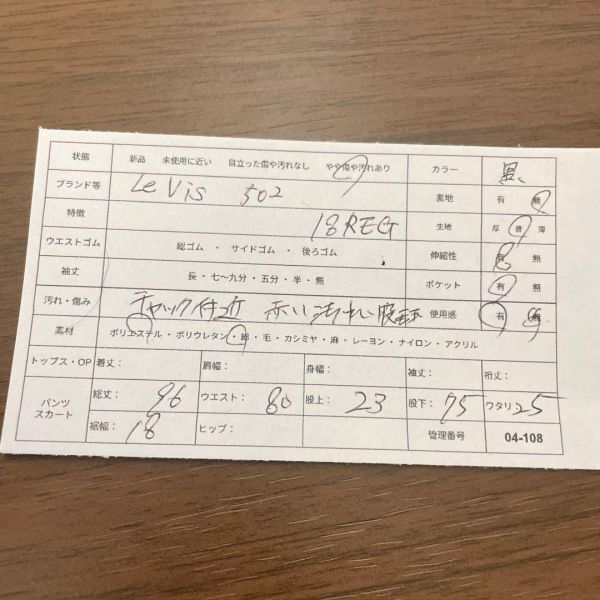 状態 新品 未使用に近い 目立った傷や汚れなし やや傷や汚れあり カラー 黒
ブランド等 Levis 502 裏地 有 無
特徴 18REG 生地 厚 普 薄
ウエストゴム 総ゴム ・ サイドゴム ・ 後ろゴム 伸縮性 有 無
袖丈 長・七〜九分・五分・半・無 ポケット 有 無
汚れ・傷み チャック付近 赤い汚れ 使用感 有 無
素材 ポリエステル・ポリウレタン・綿・毛・カシミヤ・麻・レーヨン・ナイロン・アクリル
トップス・OP 着丈: 肩幅: 身幅: 袖丈: 裄丈:
パンツ スカート 総丈: 96 ウエスト: 80 股上: 23 股下: 75 ワタリ: 25
裾幅: 18 ヒップ: 管理番号 04-108